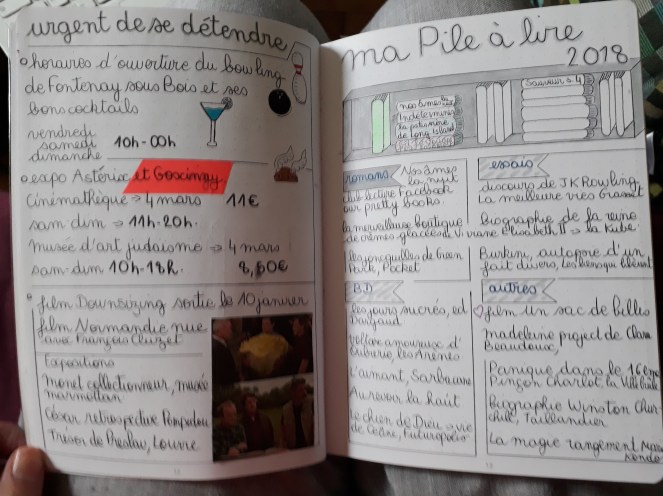 urgent de se détendre
horaires d'ouverture du bowling
de Fontenay sous Bois et ses
bons cocktails
vendredi
samedi 10h-00h
dimanche
expo Astérix et Goscinny
cinémathèque → 4 mars 11€
sam-dim → 11h-20h.
musée d'art judaisme → 4 mars
sam-dim 10h-18h. 8,60€
film Downsizing sortie le 10 janvier
film Normandie nue
avec François Cluzet
Expositions
monet collectionneur, musée
marmottan
César retrospective Pompidou
Trésor de, Louvre
ma Pile à lire
2018
nos âmes la
Indéterminés
la patinoire
de Long Island
romans
Nos âmes la nuit
club lecture Facebook
our pretty books
la merveilleuse boutique
de crèmes glacées de Viviane
les jonquilles de Green
Park, Pocket
essais
discours de JK Rowling,
La meilleure vie, Grasset
Biographie de la reine
Elisabeth II → la Kube.
Burkini, autopsie d'un
fait divers,
B.D
les jours sucrés, ed
Dargaud
voltaire amoureux d'
les Arènes
L'aimant, Sarbacane
Au revoir la haut
Le chien de Dieu → vie
de Céline, Futuropolis
autres
film Un sac de billes
madeline project de Clara
Beaudoux,
Panique dans le 16ème
Pinçon Charlot, la Ville brûle
Biographie Winston Chur-
chill, Taillandier
La magie rangement Marie
Kondo